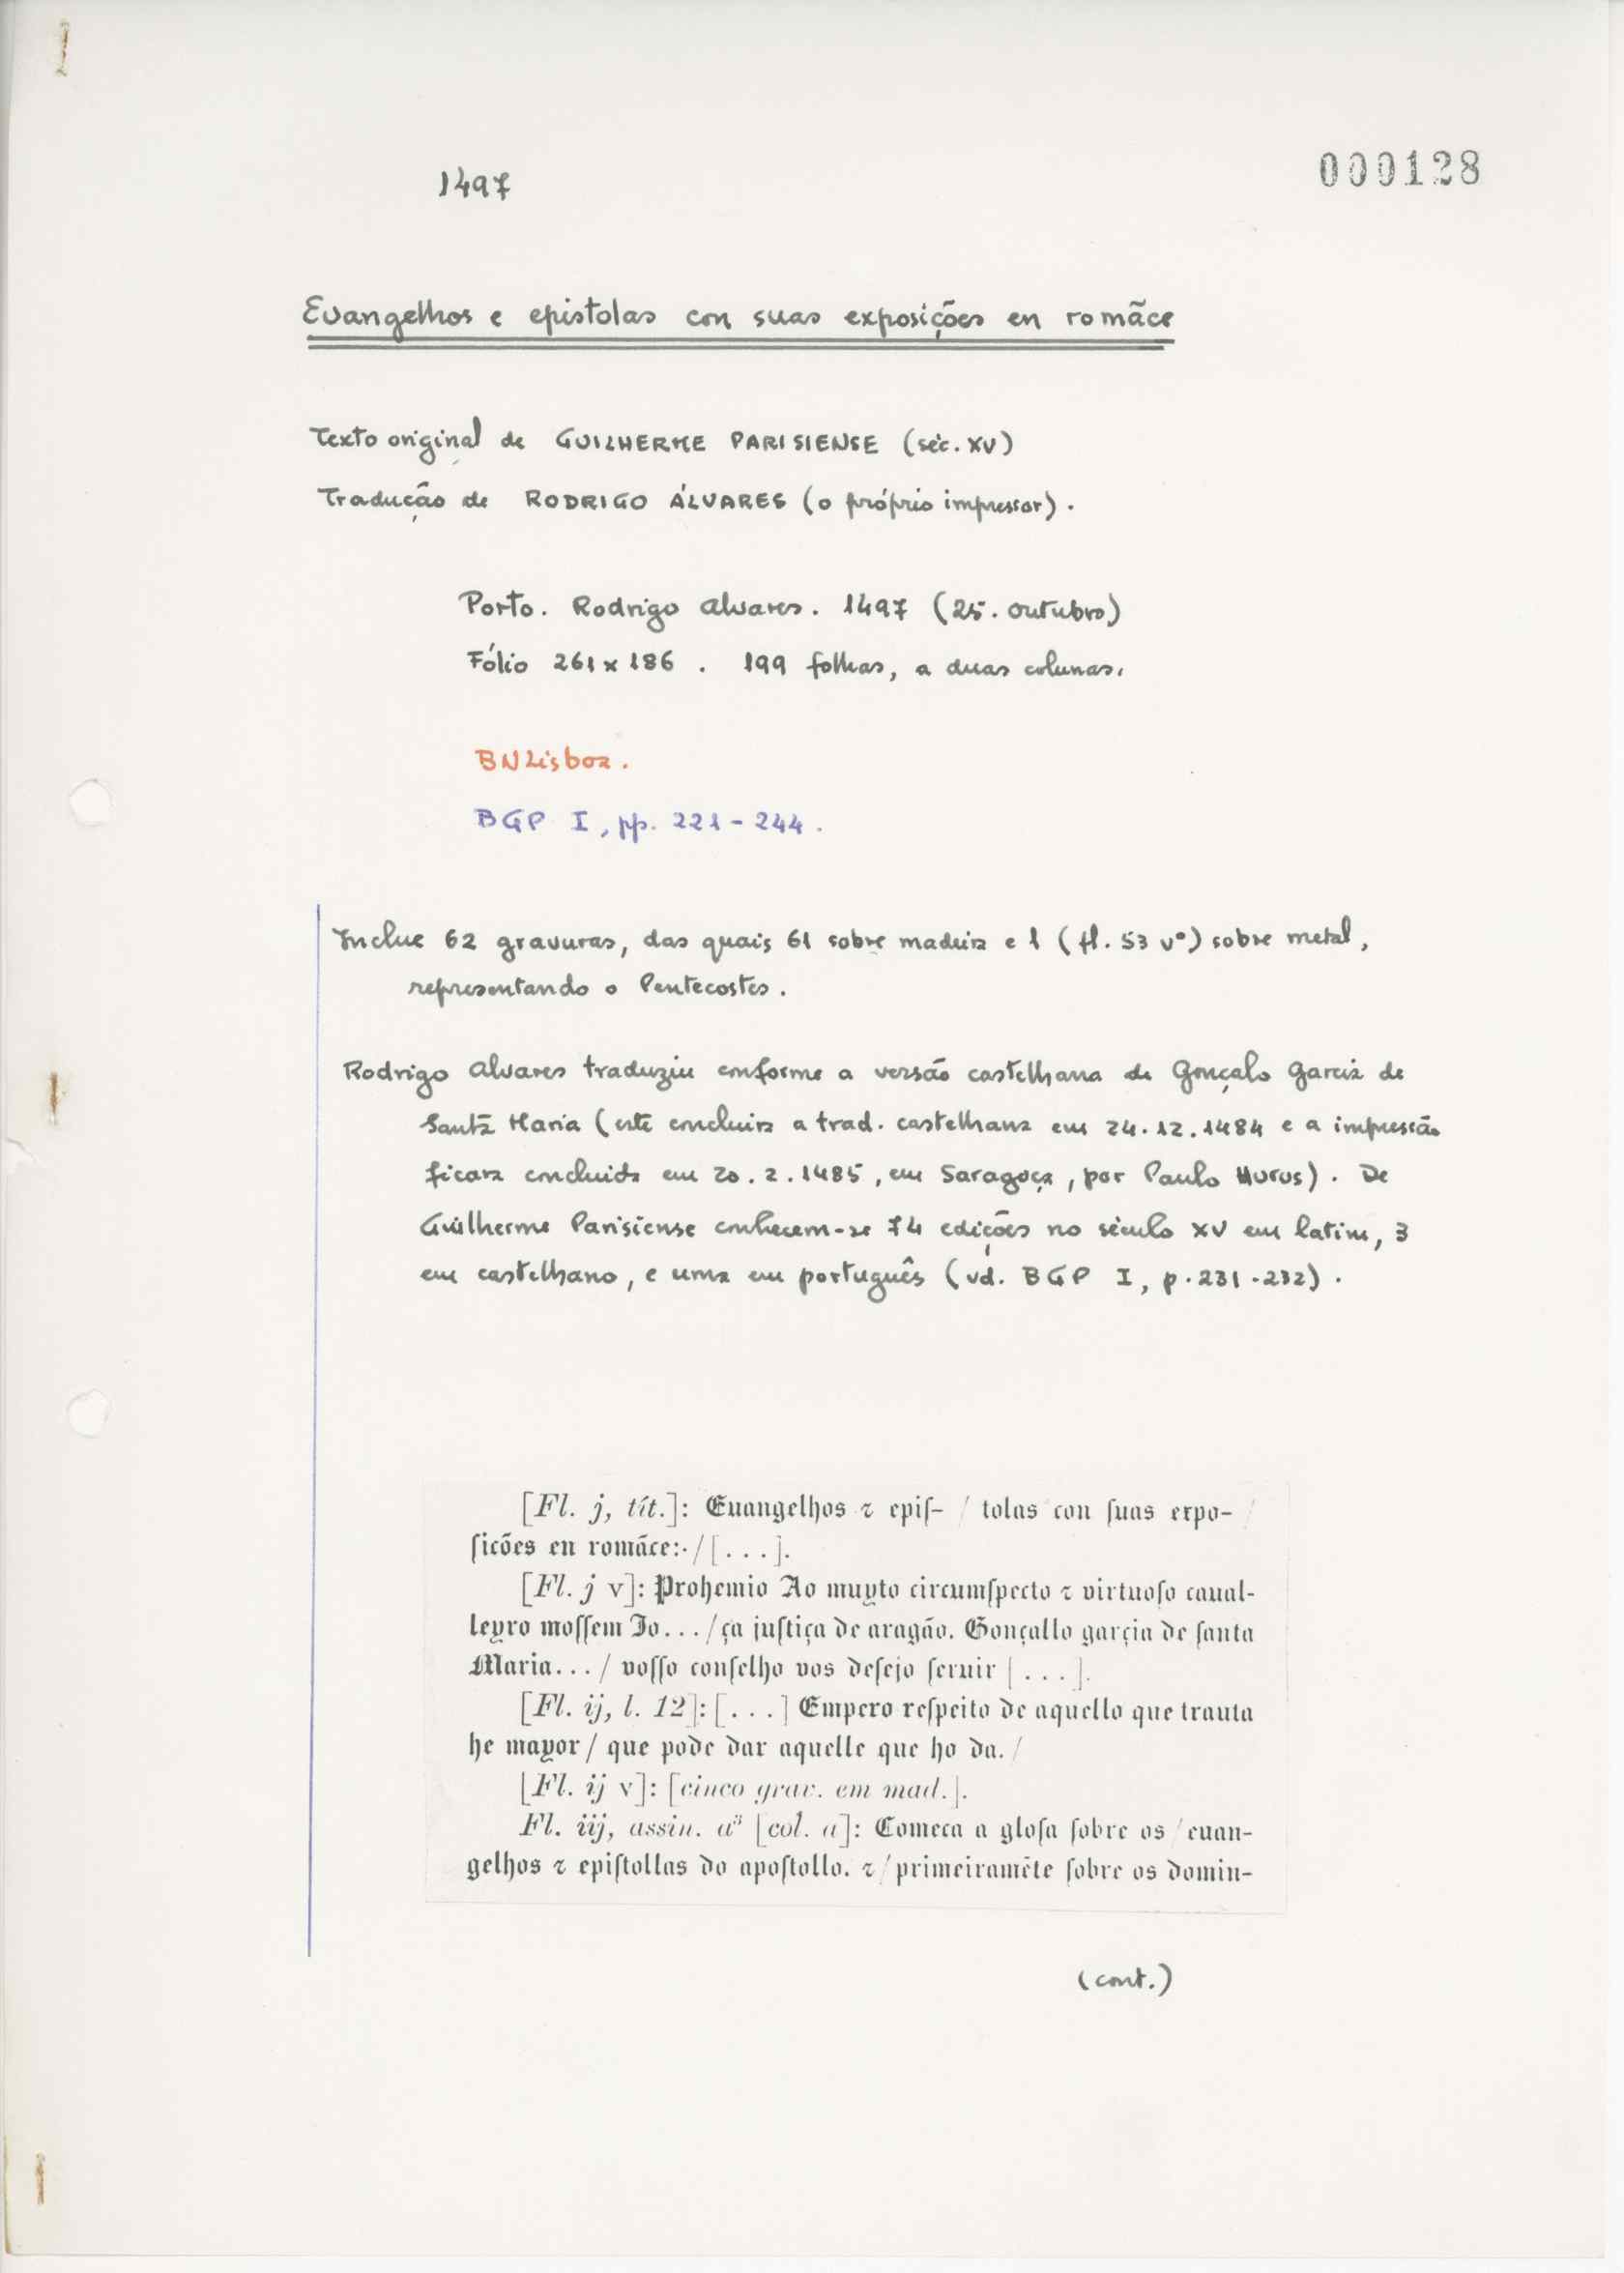 1497
000128
Evangelhos e epistolas con suas exposições en romãce
Texto original de GUILHERME PARISIENSE (séc. XV)
Tradução de RODRIGO ÁLVARES (o próprio impressor).
Porto. Rodrigo Alvares. 1497 (25. Outubro)
Fólio 261 x 186 . 199 folhas, a duas colunas.
BNLisboa.
BGP I, pp. 221-244.
Inclue 62 gravuras, das quais 61 sobre madeira e 1 (fl. 53 vº) sobre metal,
representando o Pentecostes.
Rodrigo Alvares traduziu conforme a versão castelhana de Gonçalo Garcia de
Santã Maria (este concluira a trad. castelhana em 24.12.1484 e a impressão
ficara concluida em 20.2.1485, em Saragoça, por Paulo Hurus). De
Guilherme Parisiense conhecem-se 74 edições no século XV em latim, 3
em castelhano, e uma em português (vd. BGP I, p. 231-232).
[Fl. j, tít.]: Euangelhos ⁊ epiſ- / tolas con ſuas expo- /
ſicões en romãce:·/[...].
[Fl. j v]: Prohemio Ao muyto circumſpecto ⁊ virtuoſo caual-
leyro moſſem Jo.../ça juſtiça de aragão. Gonçallo garçia de ſanta
Maria.../ voſſo conſelho vos deſejo ſeruir [...].
[Fl. ij, l. 12]: [...] Empero reſpeito de aquello que trauta
he mayor/ que pode dar aquelle que ho da./
[Fl. ij v]: [cinco grav. em mad.].
Fl. iij, assin. a³ [col. a]: Comeca a gloſa ſobre os/euan-
gelhos ⁊ epiſtollas do apoſtollo. ⁊/primeiramẽte ſobre os domin-
(cont.)